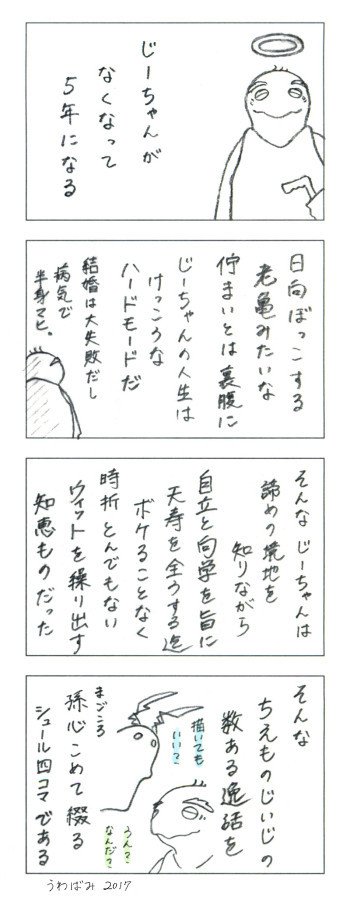 じーちゃんが
なくなって
5年になる
日向ぼっこする
老亀みたいな
佇まいとは裏腹に
じーちゃんの人生は
けっこうな
ハードモードだ
結婚は大失敗だし
病気で
半身マヒ。
そんなじーちゃんは
諦めの境地を
知りながら
自立と向学を旨に
天寿を全うする迄
ボケることなく
時折とんでもない
ウィットを繰り出す
知恵ものだった
そんな
ちえものじいじの
数ある逸話を
描いても
いい?
うん?
なんだ?
まごころ
孫心こめて綴る
シュール四コマである
うわばみ 2017